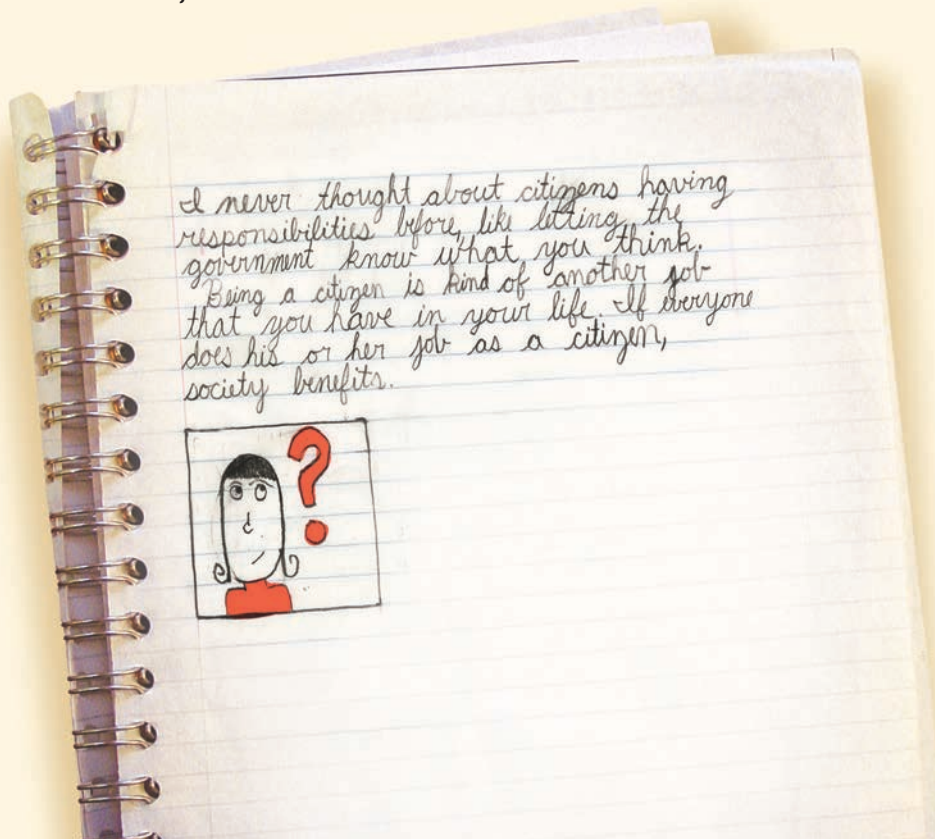 I never thought about citizens having
responsibilities before, like letting the
government know what you think.
Being a citizen is kind of another job
that you have in your life. If everyone
does his or her job as a citizen,
society benefits.
?